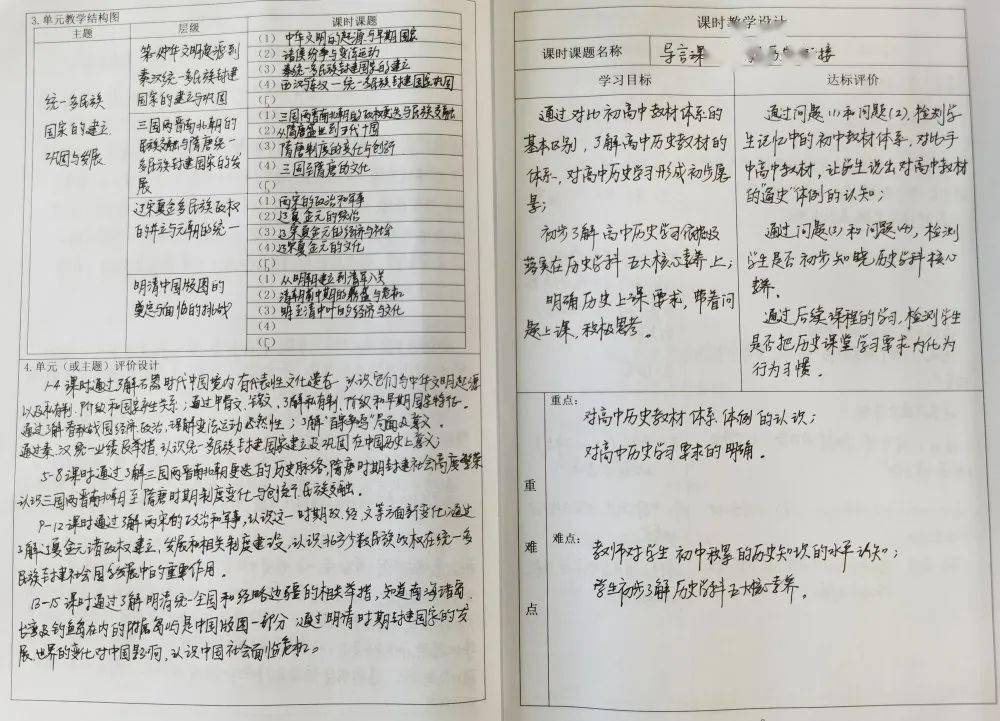 3. 单元教学结构图
主题 层级 课时课题
统一多民族
国家的建立、
巩固与发展
第一 中华文明起源到
秦汉统一多民族封建
国家的建立与巩固
(1) 中华文明的起源与早期国家
(2) 诸侯纷争与变法运动
(3) 秦统一多民族封建国家的建立
(4) 西汉与东汉—统一多民族封建国家巩固
(
三国两晋南北朝的
民族交融与隋唐统一
多民族封建国家的发
展
(1) 三国两晋南北朝的政权更迭与民族交融
(2) 从隋唐盛世到五代十国
(3) 隋唐制度的变化与创新
(4) 三国至隋唐的文化
(
辽宋夏金多民族政权
的并立与元朝的统一
(1) 两宋的政治和军事
(2) 辽夏金元的统治
(3) 辽宋夏金元的经济与社会
(4) 辽宋夏金元的文化
(
明清中国版图的
奠定与面临的挑战
(1) 从明朝建立到清军入关
(2) 清朝前中期的鼎盛与危机
(3) 明至清中叶的经济与文化
(4)
(
4. 单元（或主题）评价设计
1-4课时通过了解石器时代中国境内有代表性文化遗存 认识它们与中华文明起源
以及私有制、阶级和国家产生关系；通过甲骨文、 了解私有制、阶级和早期国家特征。
通过了解春秋战国经济政治，理解变法运动必然性；了解“百家争鸣”局面及意义。
通过秦、汉统一业绩及举措，认识统一多民族封建国家建立及巩固在中国历史上意义；
5-8课时通过了解三国两晋南北朝更迭的历史脉络，隋唐时期封建社会高度繁荣
认识三国两晋南北朝至隋唐时期制度变化与创新、民族交融。
9-12课时通过了解两宋的政治和军事，认识这一时期政、经、文等方面新变化；通过
了解辽夏金元诸政权建立，发展和相关制度建设，认识北方少数民族政权在统一多
民族封建社会国家发展中的重要作用。
13-15课时通过了解明清统一全国和经略边疆的相关举措，知道南海诸岛、
台湾及钓鱼岛在内的附属岛屿是中国版图一部分 通过明清时期封建国家的发
展、世界的变化对中国影响，认识中国社会面临危机。
课时教学设计
课时课题名称 导言课 接
学习目标 达标评价
通过对比初高中教材体系的
基本区别，了解高中历史教材的
体系，对高中历史学习形成初步愿
景；
初步了解高中历史学习依据及
落实在历史学科五大核心素养上；
明确历史上课要求，带着问
题上课，积极思考。
通过问题(1)和问题(2)，检测学
生记忆中的初中教材体系，对比手
中高中教材，让学生说出对高中教材
的“通史”体例的认知；
通过问题(3)和问题(4)，检测
学生是否初步知晓历史学科核心
素养。
通过后续课程的学习，检测学生
是否把历史课堂学习要求内化为
行为习惯。
重
难
点
重点：
对高中历史教材体系体例的认识；
对高中历史学习要求的明确。
难点：
教师对学生初中积累的历史知识的水平认知；
学生初步了解历史学科五大核心素养。